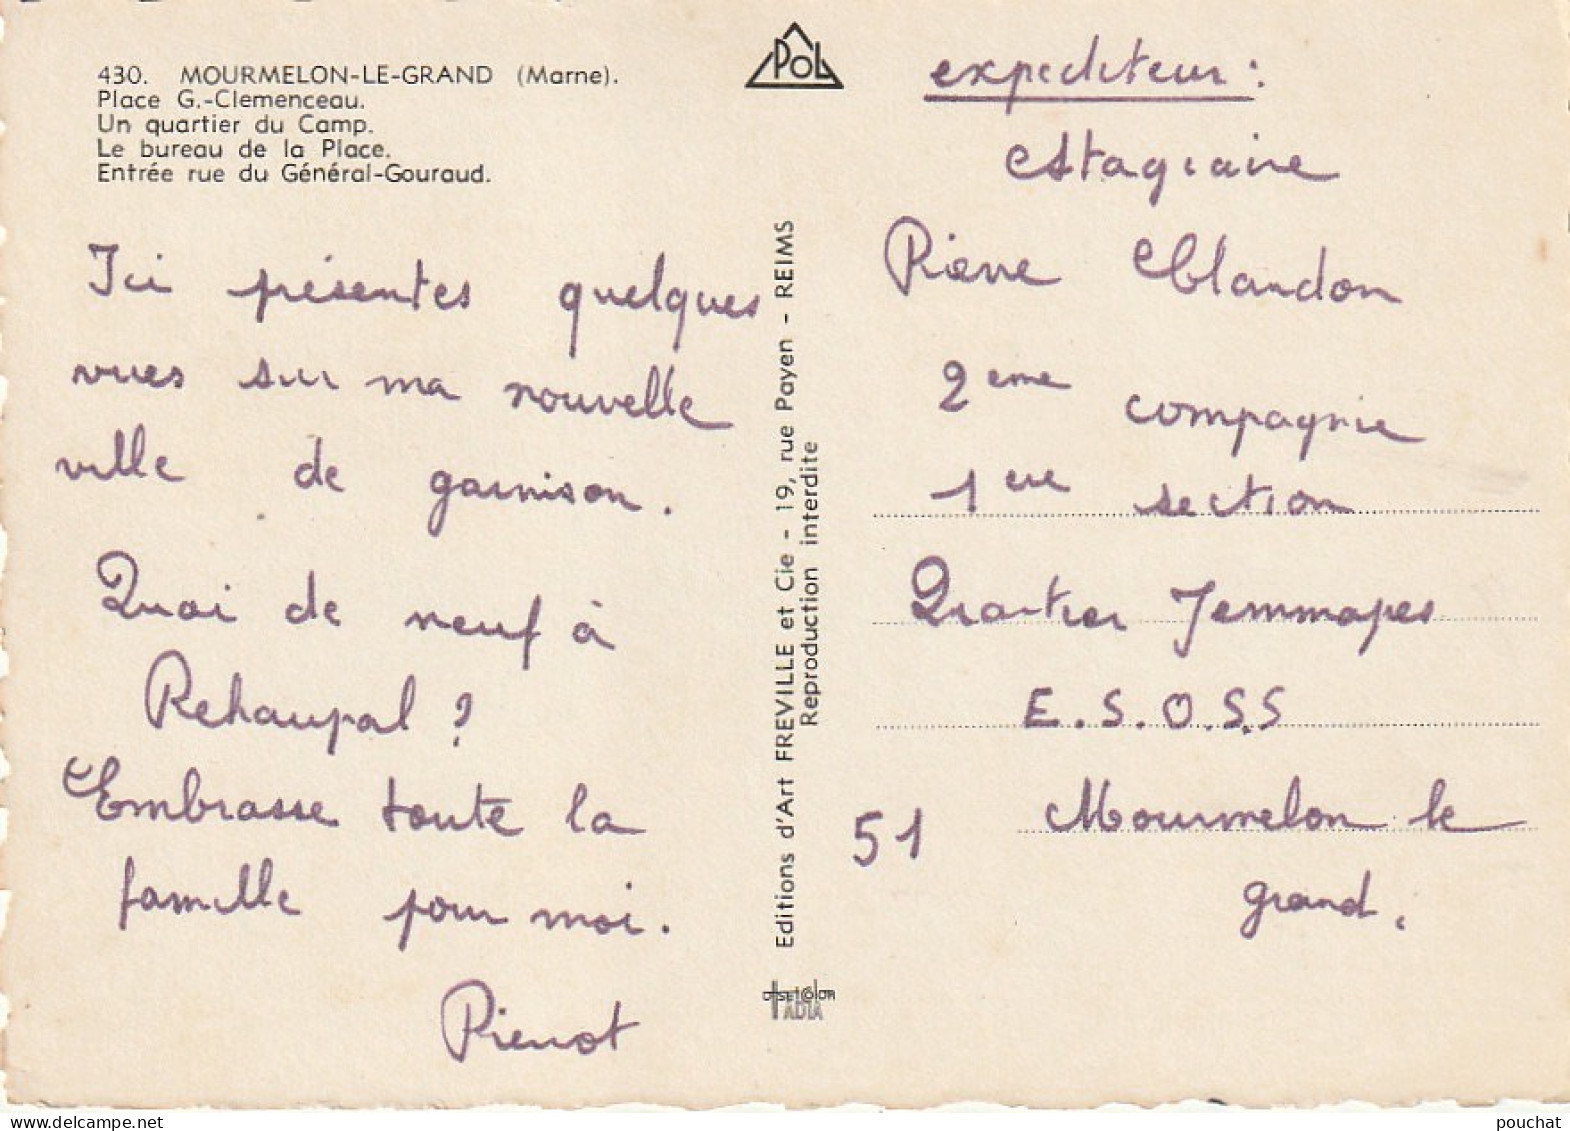 430. MOURMELON-LE-GRAND (Marne).
Place G.-Clemenceau.
Un quartier du Camp.
Le bureau de la Place.
Entrée rue du Général-Gouraud.
Ici présentes quelques
vues sur ma nouvelle
ville de garnison.
Quoi de neuf à
Rehaupal ?
Embrasse toute la
famille pour moi.
Pierrot
POL
Editions d'Art FREVILLE et Cie - 19, rue Payen - REIMS
Reproduction interdite
offset color
IADIA
expediteur :
Stagiaire
Pierre Blandon
2eme compagnie
1ere section
Quartier Jemmapes
E.S.O.S.S
51 Mourmelon le
grand.
pouchat